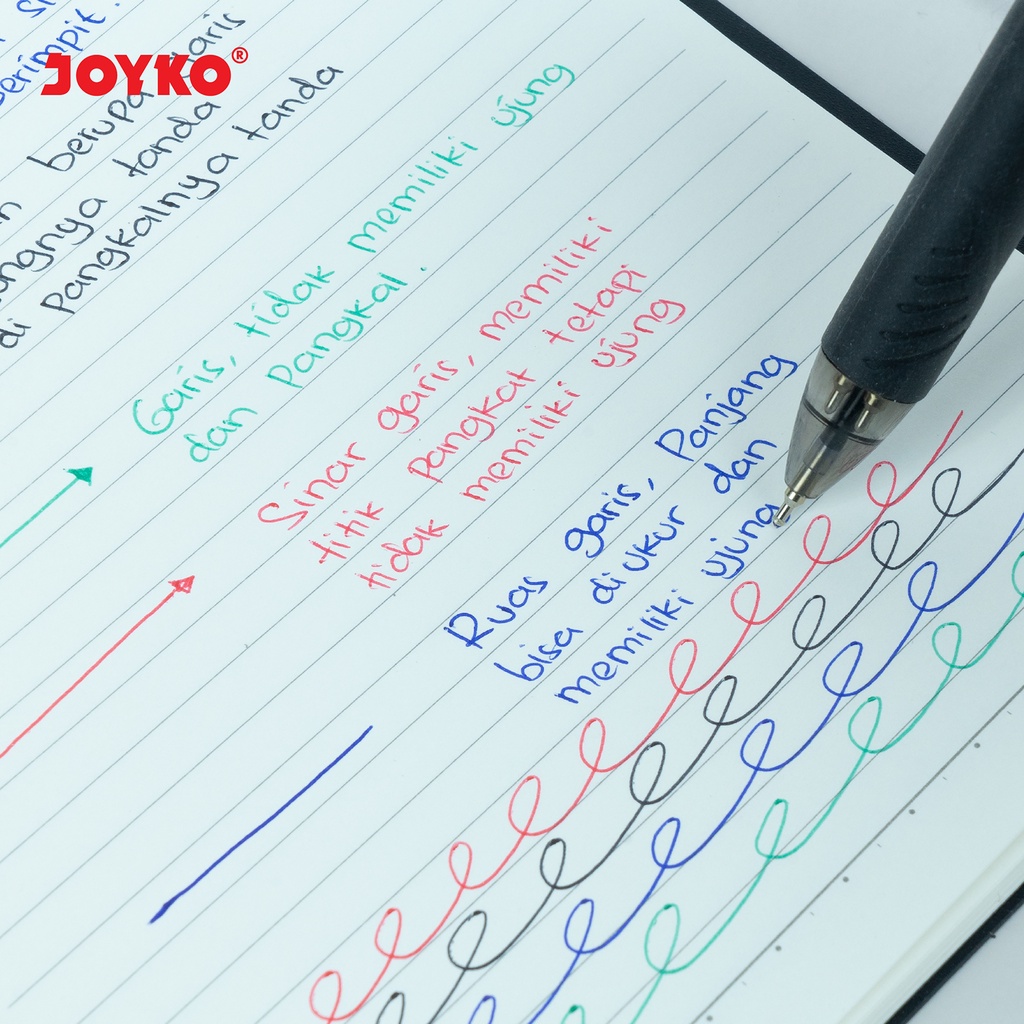 JOYKO®
berupa garis
tanda
di Pangkalnya tanda
Garis, tidak memiliki ujung
dan Pangkal.
Sinar garis, memiliki
titik Pangkat tetapi
tidak memiliki ujung
Ruas garis, Panjang
bisa diukur dan
memiliki ujung